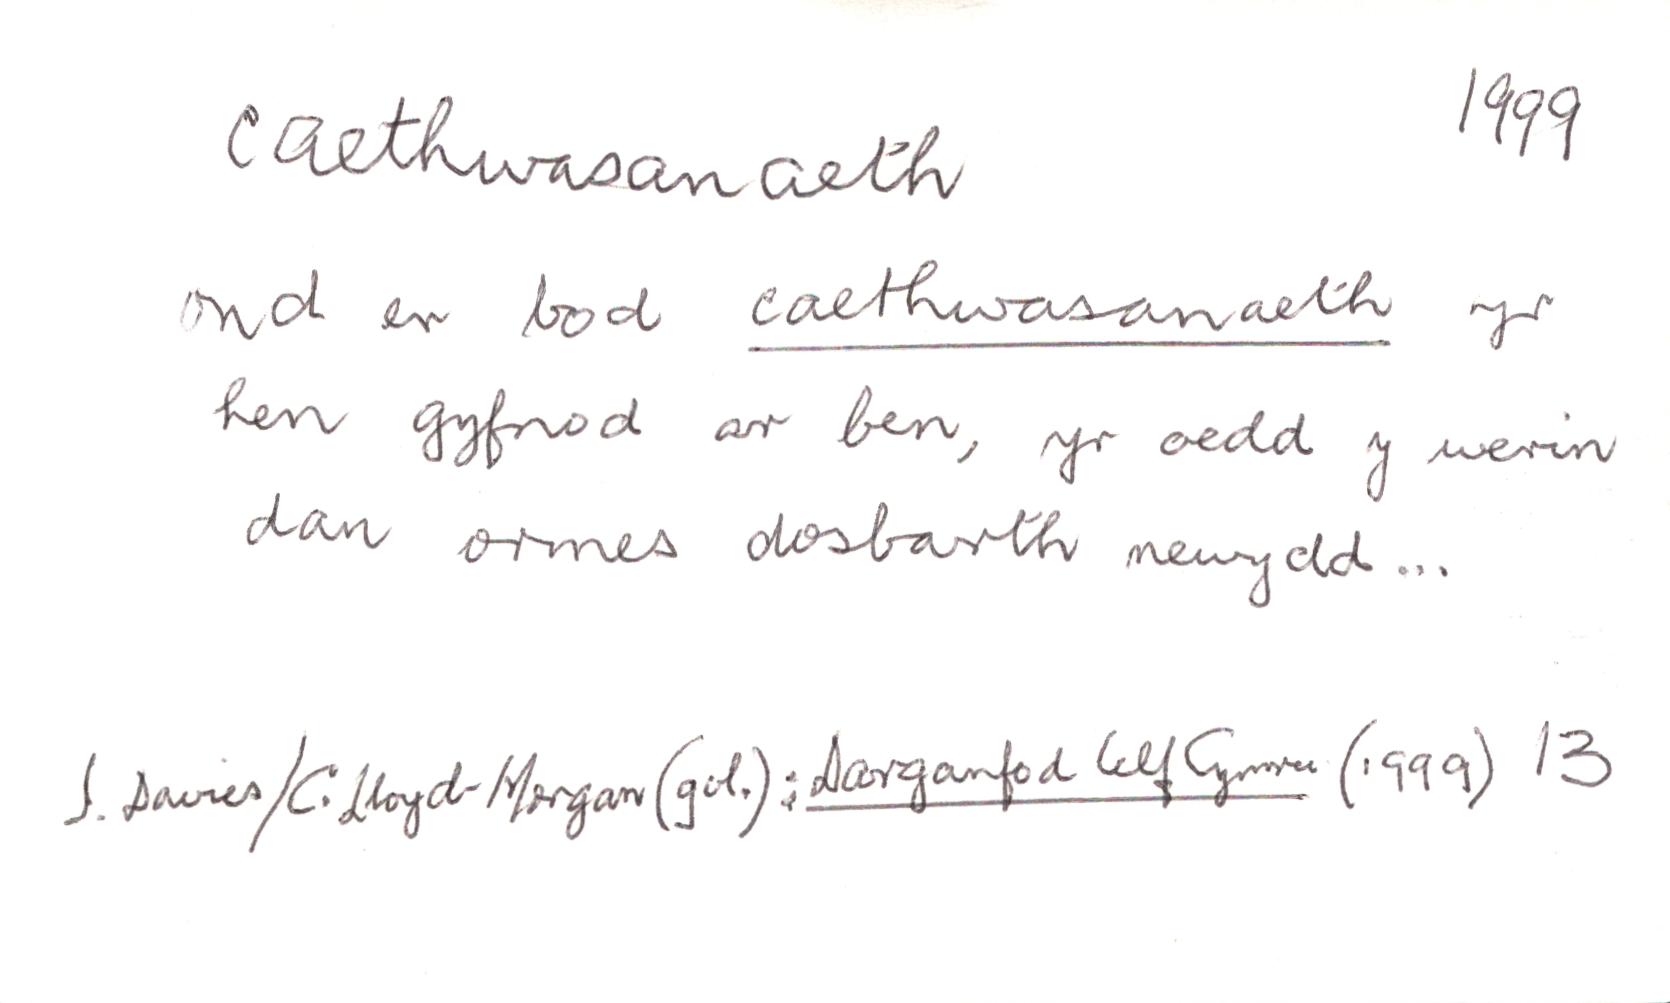 caethwasanaeth 1999
ond er bod caethwasanaeth yr
hen gyfnod ar ben, yr oedd y werin
dan ormes dosbarth newydd...
J. Davies/C. Lloyd-Morgan (gol.): Darganfod Celf Cymru (1999) 13